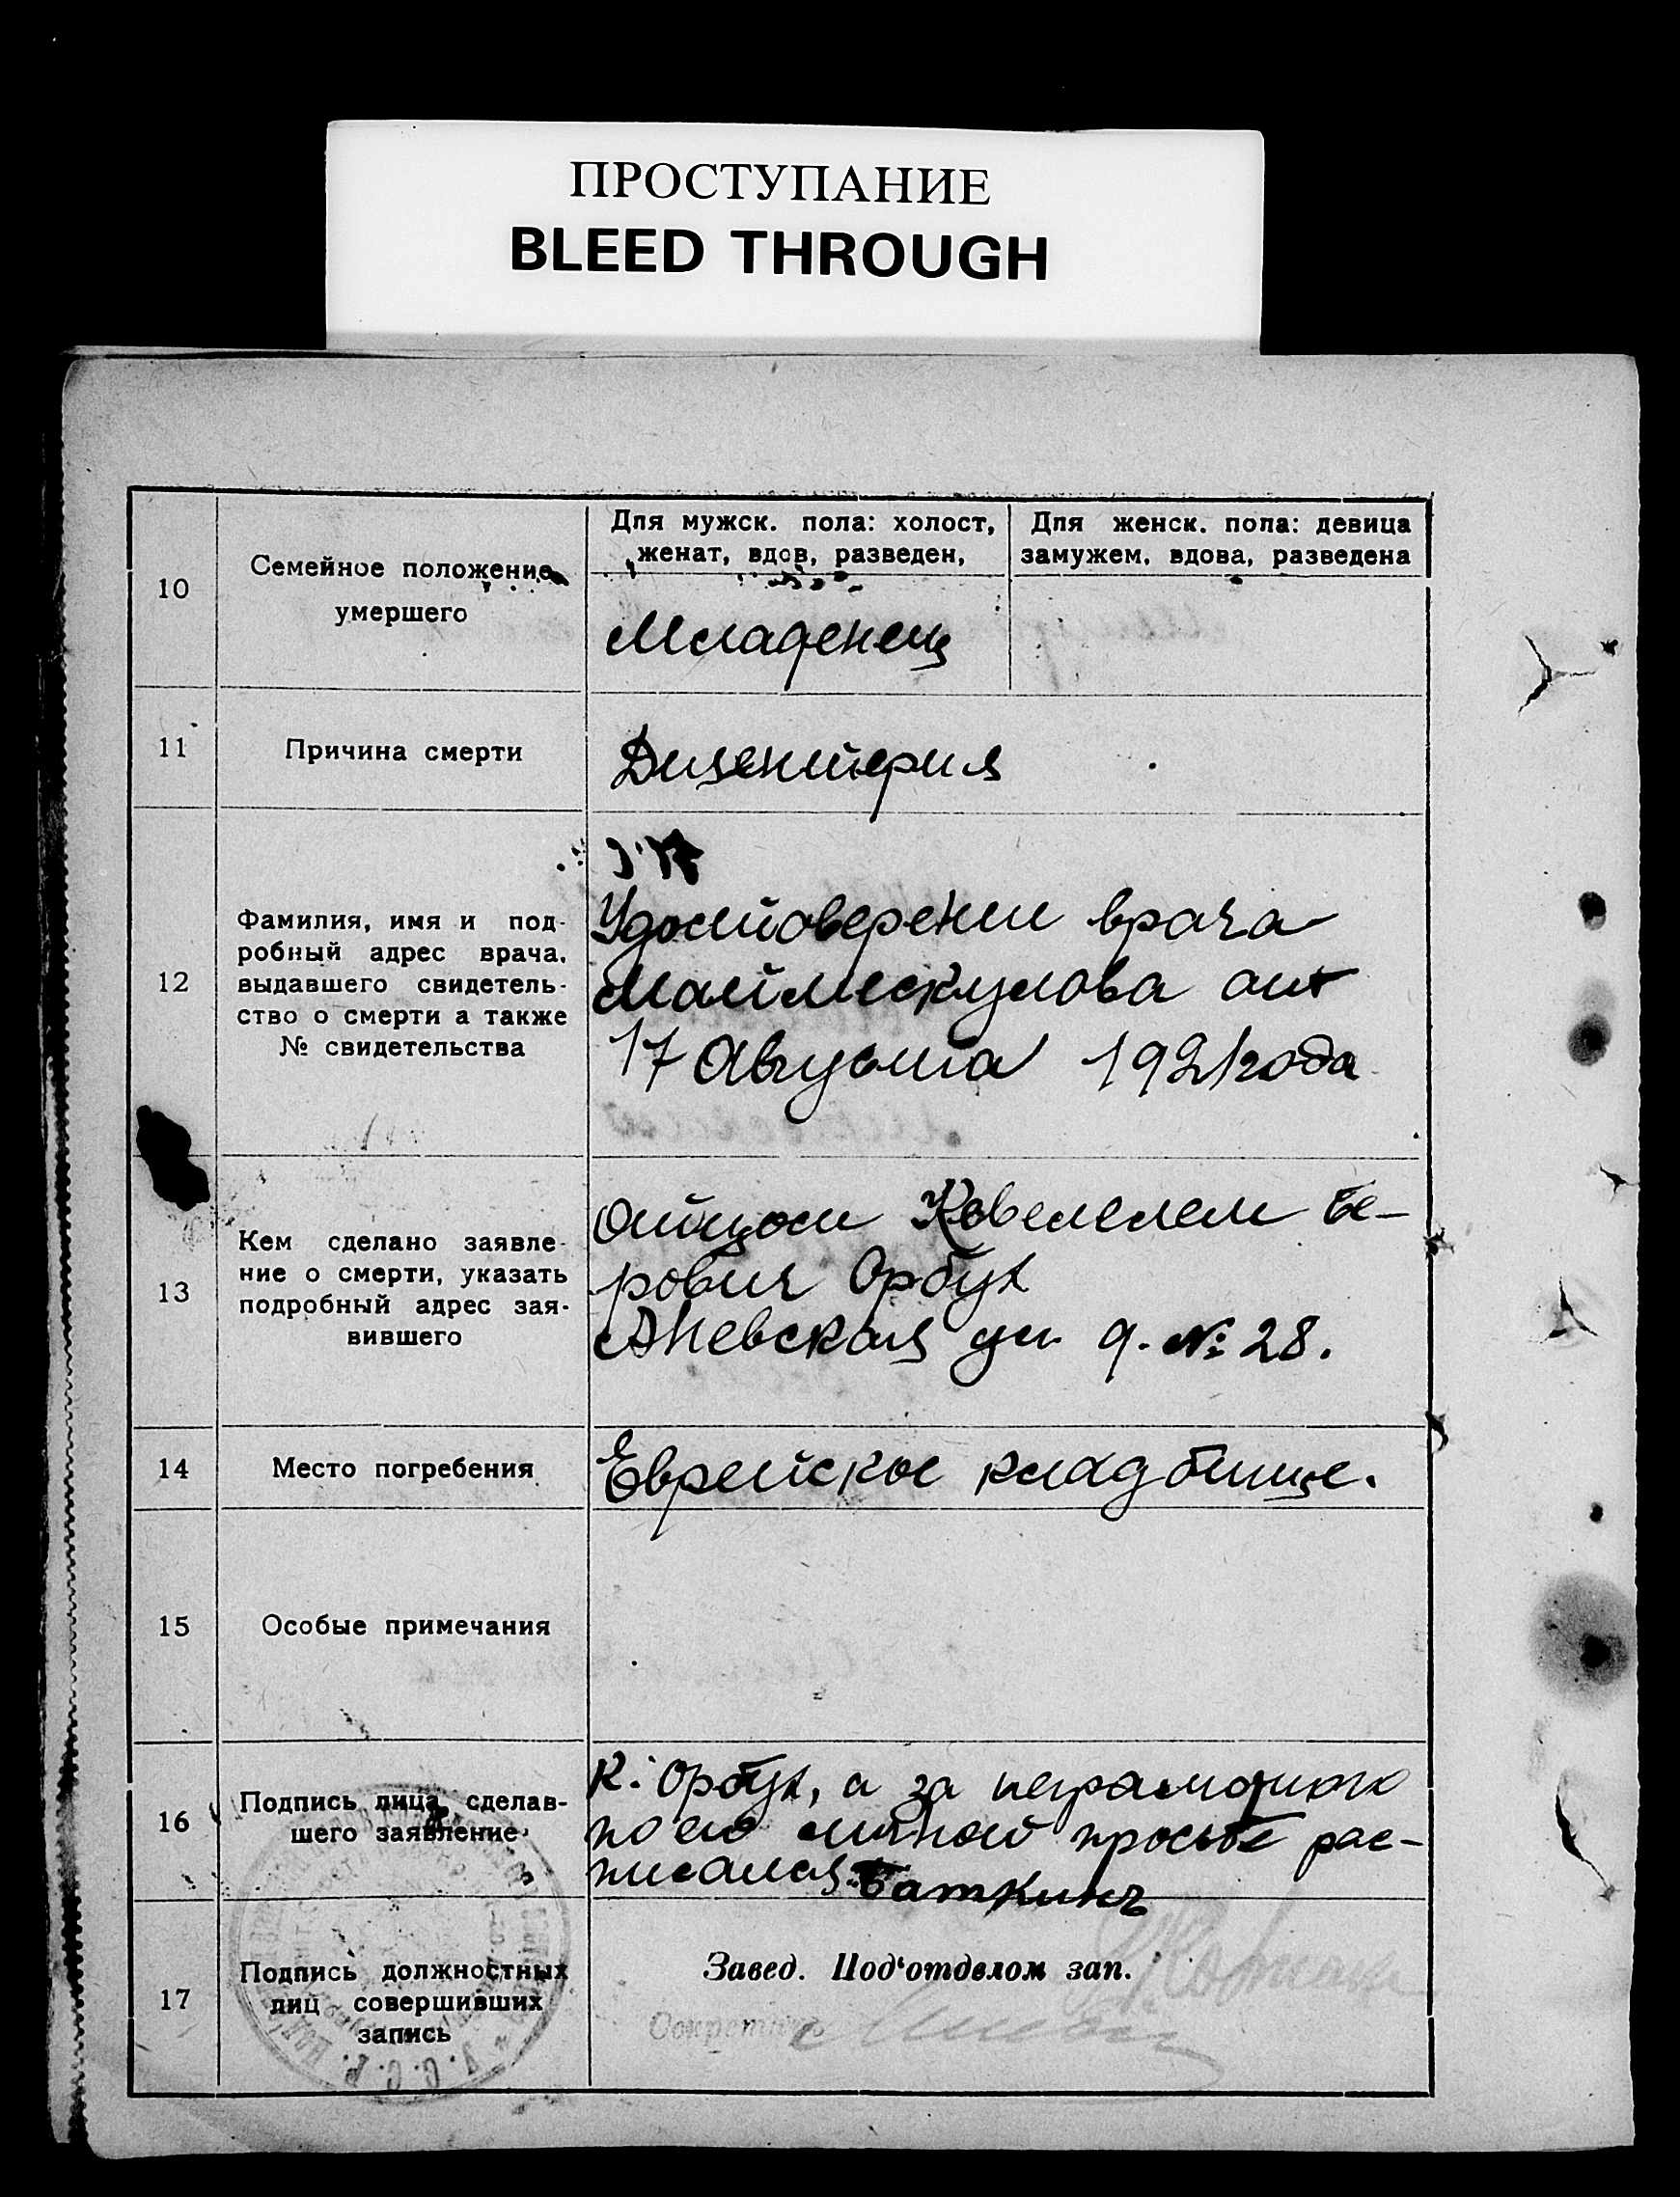 ПРОСТУПАНИЕ
BLEED THROUGH
10
Семейное положение
умершего
Для мужск. пола: холост,
женат, вдов, разведен,
Для женск. пола: девица
замужем, вдова, разведена
Младенец
11
Причина смерти
Дизентерия
12
Фамилия, имя и под-
робный адрес врача,
выдавшего свидетель-
ство о смерти а также
№ свидетельства
Удостоверении врача
от
17 Августа 1921 года
13
Кем сделано заявле-
ние о смерти, указать
подробный адрес зая-
вившего
Отцом Бе-
рович Орбух
ул д. № 28.
14
Место погребения
Еврейское кладбище.
15
Особые примечания
16
Подпись лица, сделав-
шего заявление
К. Орбух, а за неграмотного
по его личной просьбе рас-
писался Баткинъ
17
Подпись должностных
лиц совершивших
запись
Завед. Под‘отделом зап.
Секретарь